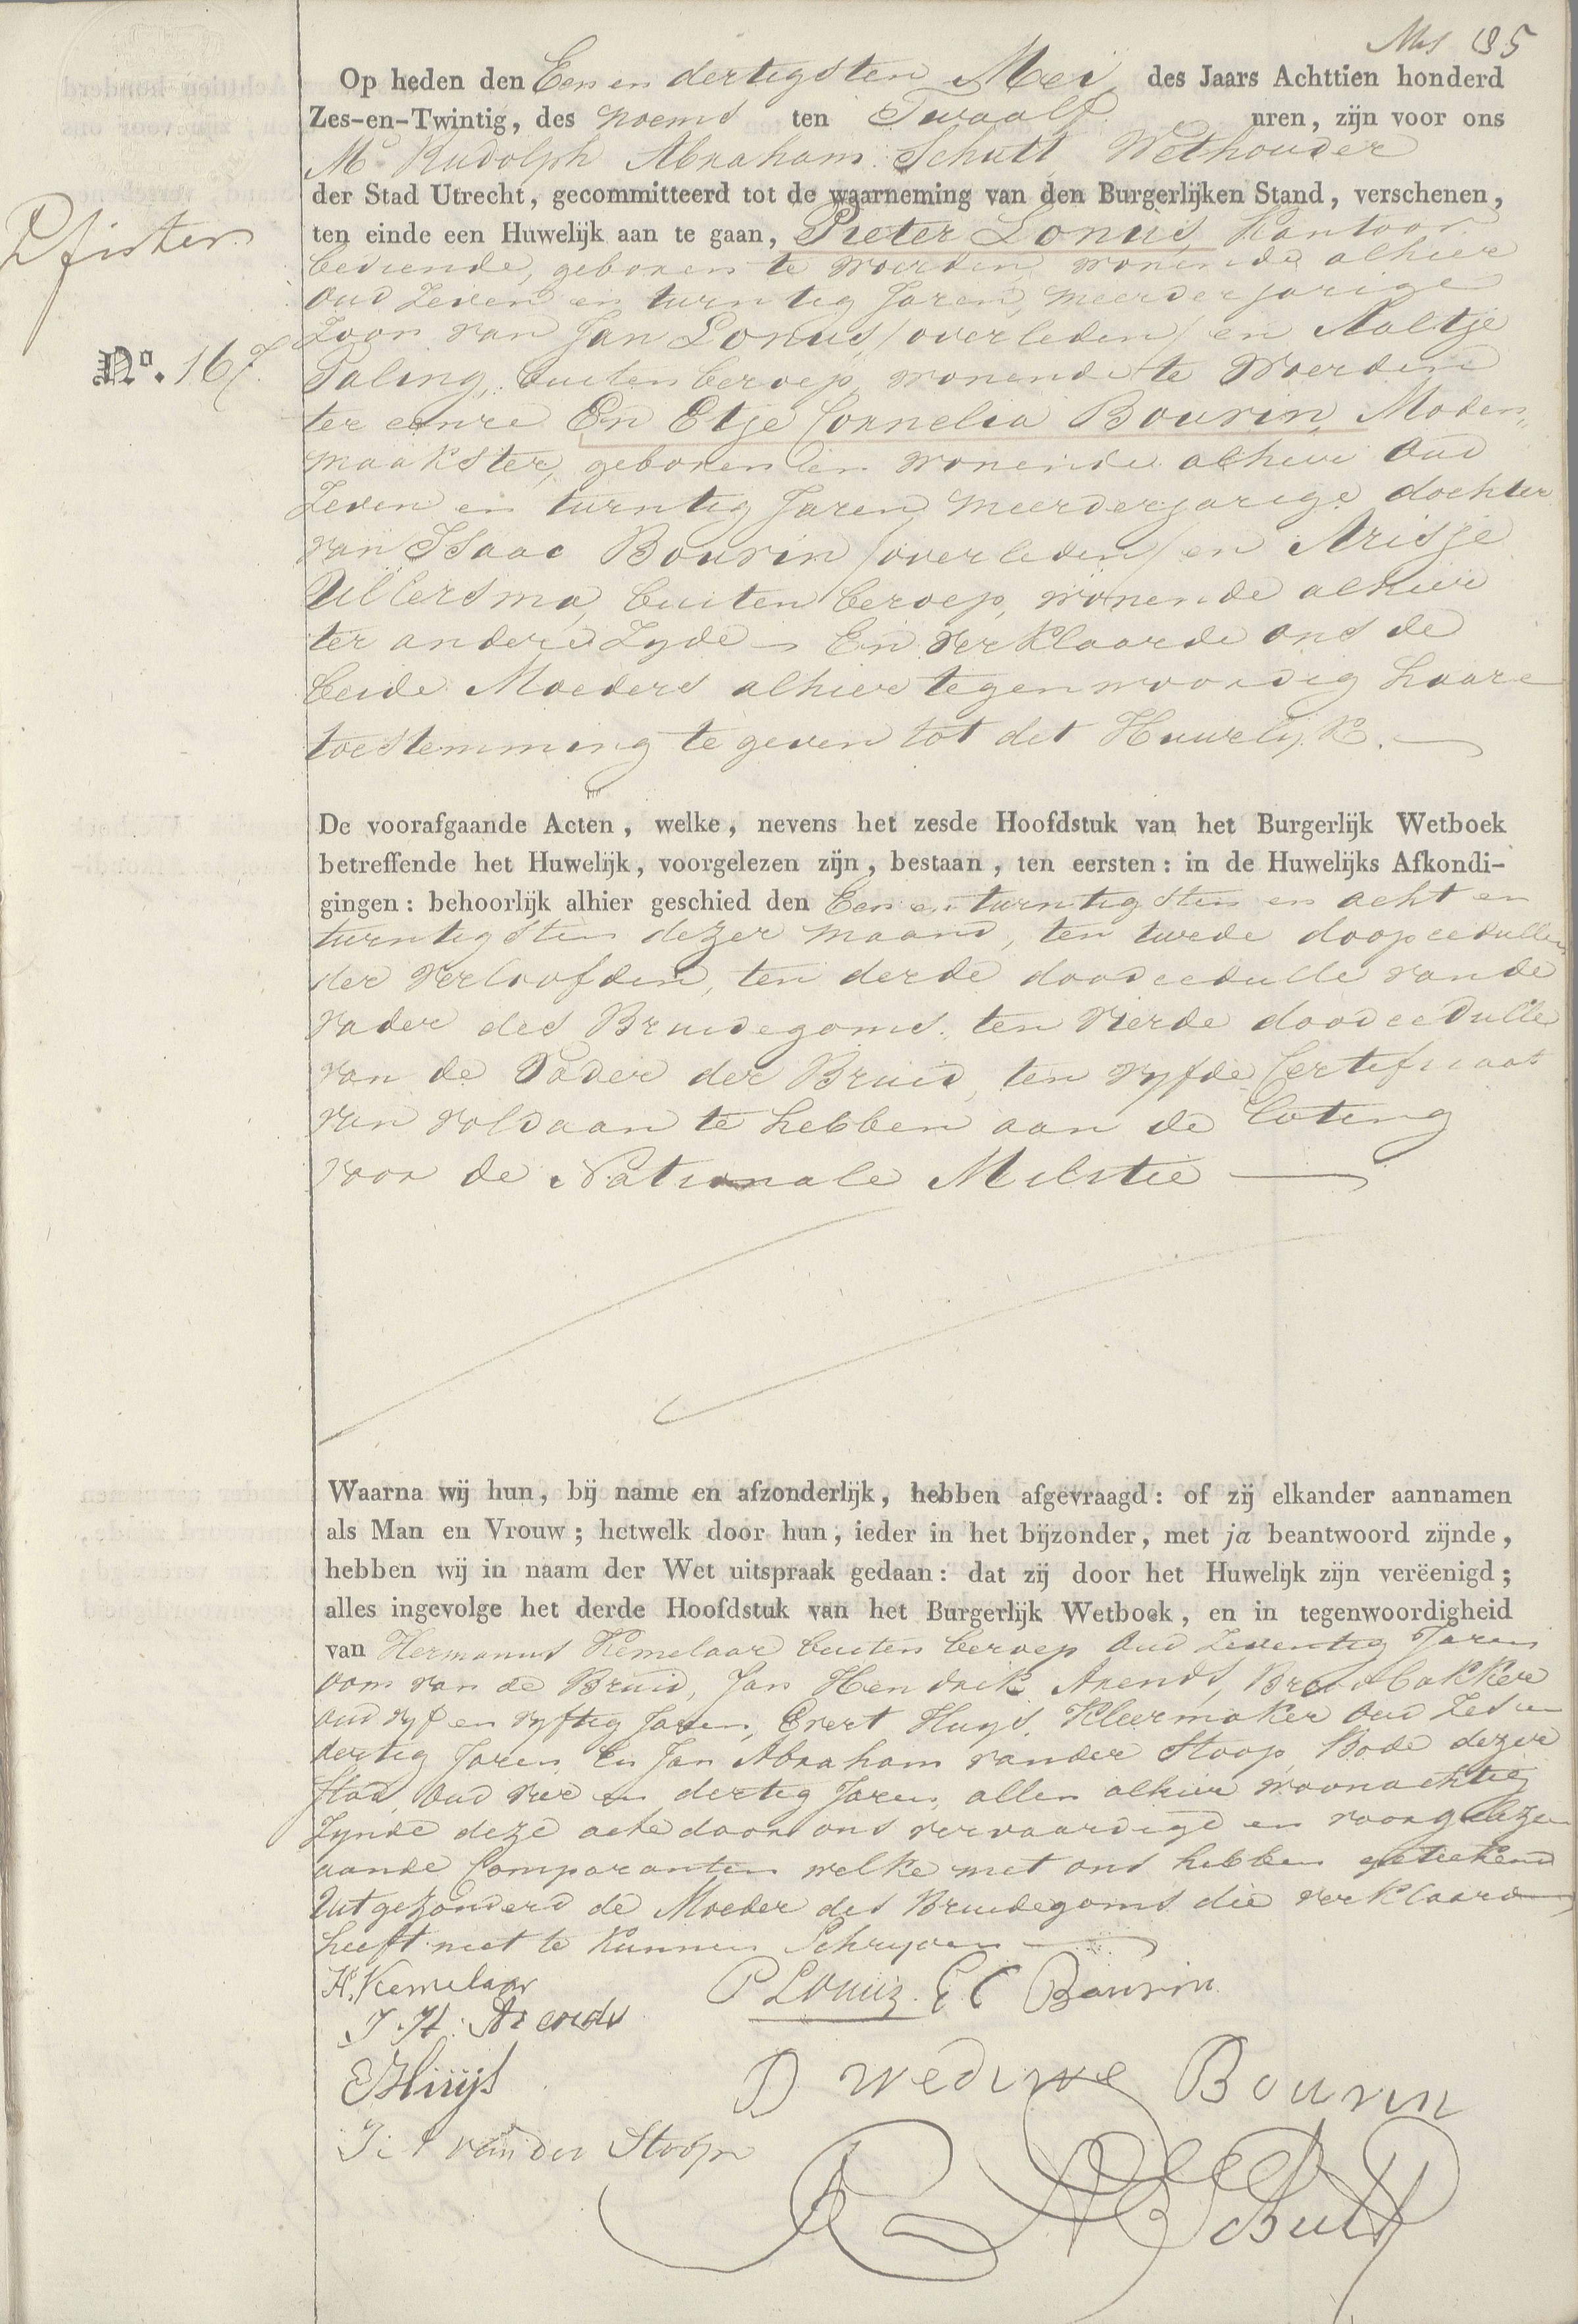 185
Op heden den Een en dertigsten Mei des Jaars Achttien honderd
Zes-en-Twintig, des noems ten Twaalf uren, zijn voor ons
Mr Rudolph Abraham Schutt Wethouder
der Stad Utrecht, gecommitteerd tot de waarneming van den Burgerlijken Stand, verschenen,
ten einde een Huwelijk aan te gaan, Pieter Lonus, Kantoor
bediende, geboren te Woerden, wonende alhier
Oud Zeven en twintig Jaren, meerderjarige
Zoon van Jan Lonus (overleden) en Aaltje
Paling, buiten beroep, wonende te Woerden
ter eenre En Etje Cornelia Bourin, Moden„
maakster, geboren en wonende alhier Oud
Zeven en twintig Jaren, meerderjarige dochter
van Isaac Bourin (overleden) en Arisje
Ullersma, buiten beroep, wonende alhier
ter andere Zyde – En verklaarde ons de
beide Moeders alhier tegenwoordig haare
toestemming te geven tot dit Huwelijk.
Pfister
No. 167.
De voorafgaande Acten, welke, nevens het zesde Hoofdstuk van het Burgerlijk Wetboek
betreffende het Huwelijk, voorgelezen zijn, bestaan, ten eersten: in de Huwelijks Afkondi-
gingen: behoorlijk alhier geschied den Een en twintigsten en acht en
twintigsten dezer maand, ten twede doopcedullen
der verloofden, ten derde doodcedulle vande
vader des Bruidegoms, ten vierde doodcedulle
van de Vader der Bruid, ten vyfde Certificaat
van voldaan te hebben aan de Loting
voor de Nationale Militie
Waarna wij hun, bij name en afzonderlijk, hebben afgevraagd: of zij elkander aannamen
als Man en Vrouw; hetwelk door hun, ieder in het bijzonder, met ja beantwoord zijnde,
hebben wij in naam der Wet uitspraak gedaan: dat zij door het Huwelijk zijn verëenigd;
alles ingevolge het derde Hoofdstuk van het Burgerlijk Wetboek, en in tegenwoordigheid
van Hermanus Kemelaar buiten beroep Oud Zeventig Jaren
oom van de Bruid, Jan Hendrik Arends, Broodbakker
oud vyf en vyftig Jaren, Evert Huys, Kleermaker Oud Zes en
dertig Jaren En Jan Abraham vander Stoop, Bode dezer
Stad, Oud vier en dertig Jaren, allen alhier woonachtig
Zynde deze acte door ons vervaardigd en voorgelezen
aande Comparanten welke met ons hebben getekend
Uitgezonderd de Moeder des Bruidegoms die verklaard
heeft niet te kunnen Schryven
H. Kemelaar P Lonus. E C Bourin
J. H. Arends
E Huijs D weduwe Bourin
J: A van der Stoop
R A Schutt